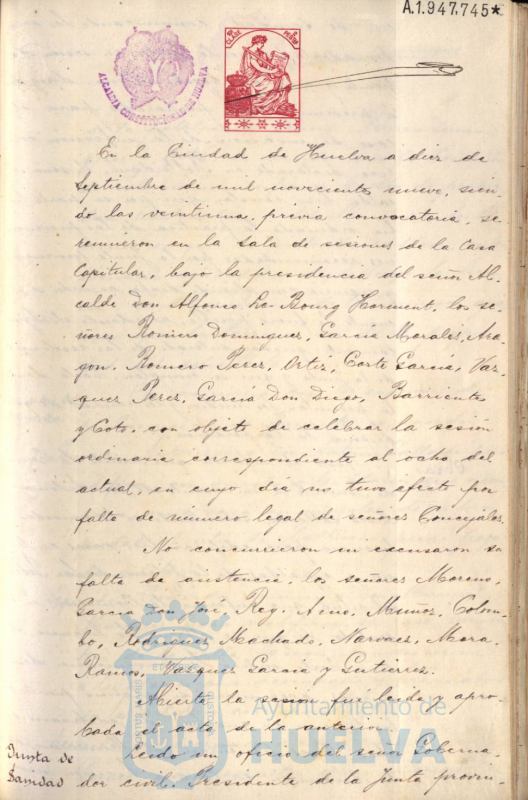 A.1.947.745*
ALCALDIA CONSTITUCIONAL DE HUELVA
En la Ciudad de Huelva a diez de
Septiembre de mil novecientos nueve, sien-
do las veintiuna, previa convocatoria, se
reunieron en la Sala de sesiones de la Casa
Capitular, bajo la presidencia del señor Al-
calde Don Alfonso Le-Bourg Horment, los se-
ñores Romero Dominguez, Garcia Morales, Ara-
gon, Romero Perez, Ortiz, Corte Garcia, Vaz-
quez Perez, Garcia Don Diego, Barrientos
y Coto, con objeto de celebrar la sesión
ordinaria correspondiente al ocho del
actual, en cuyo día no tuvo efecto por
falta de número legal de señores Concejales.
No concurrieron ni excusaron su
falta de asistencia, los señores Moreno,
Garcia Don José, Rey, Muñoz, Colom-
bo, Rodriguez Machado, Narvaez, Mora,
Ramos, Vazquez Garcia y Gutierrez.
Abierta la sesión fue leida y apro-
bada el acta de la anterior.
Junta de
Sanidad
Leido un oficio del señor Goberna-
dor civil, Presidente de la Junta provin-
Ayuntamiento de
HUELVA